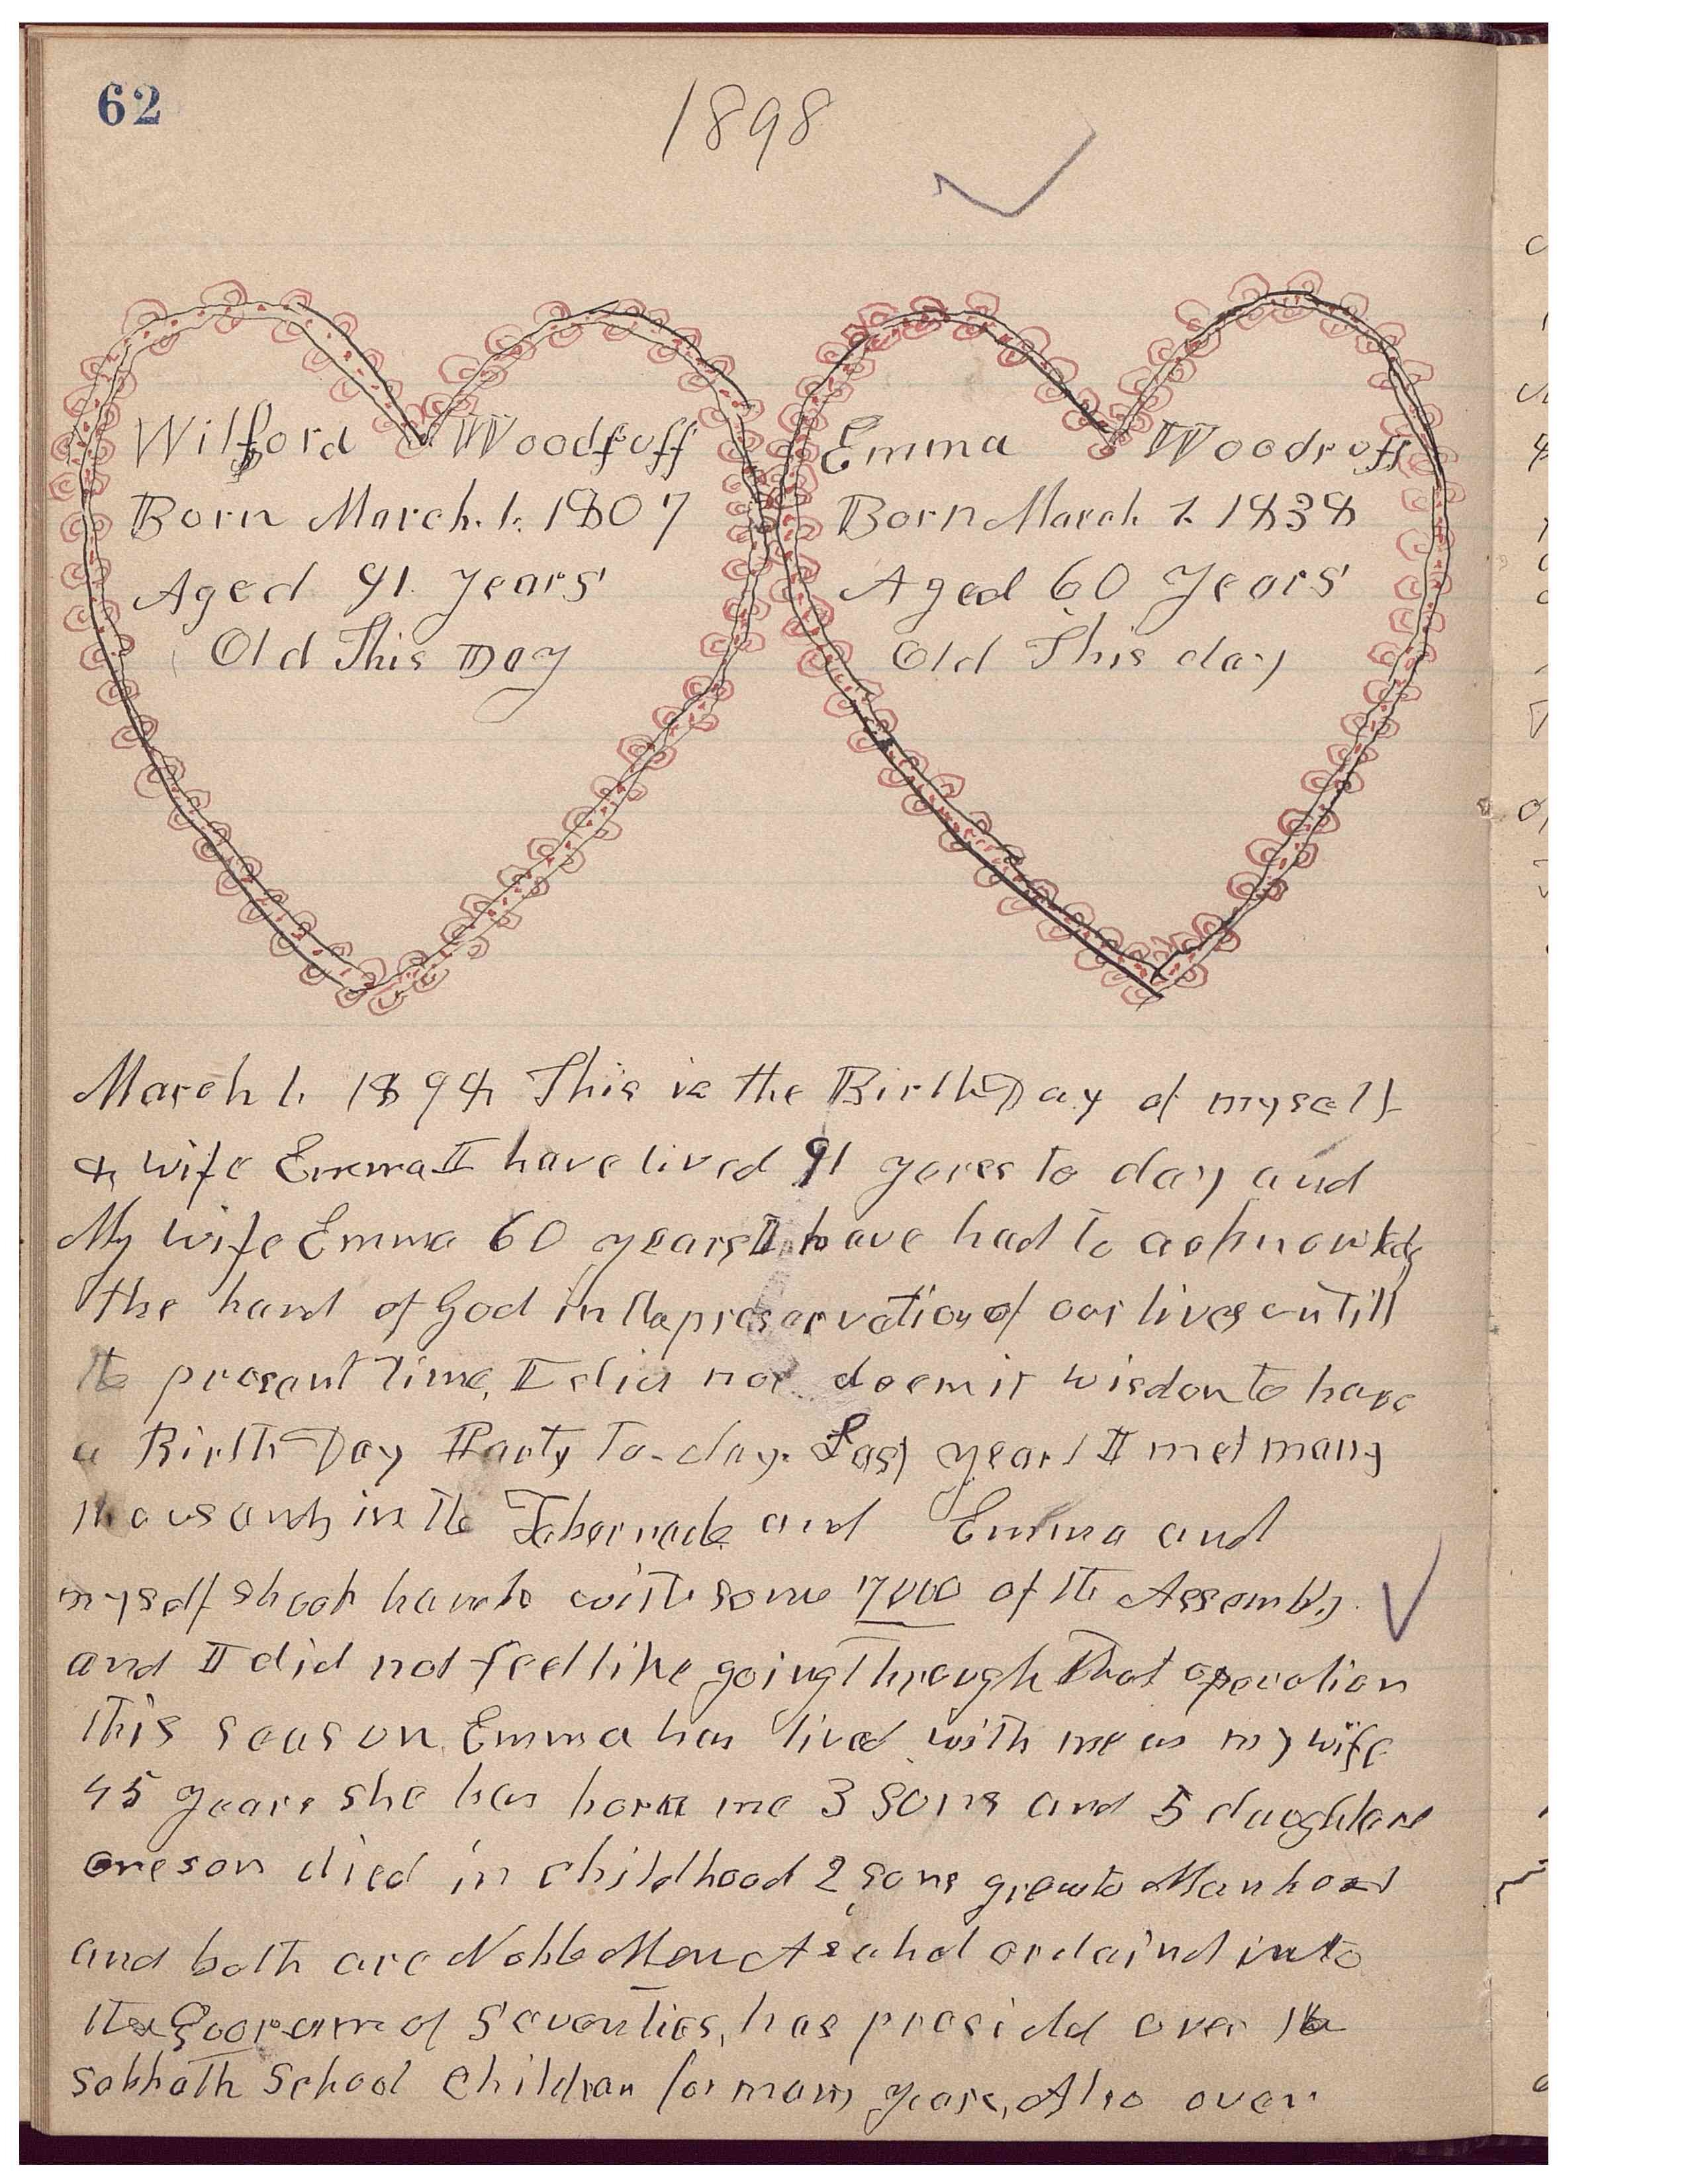 62
1898
Wilford Woodruff
Born March. 1. 1807
Aged 91. years
Old This Day
Emma Woodruff
Born March 1. 1838
Aged 60 Years
Old This day
March 1. 1898 This is the Birth Day of myself
& wife Emma I have lived 91 yeres to day and
My wife Emma 60 years I have had to acknowledg
the hand of God in the preservation of our lives untill
the presant time, I did not deem it wisdom to have
a Birth Day Party To-day. Last year I met many
thousands in the Tabernacle and Emma and
myself shook hands with some 7000 of the Assembly.
and I did not feel like going through that operation
this season. Emma has lived with me as my wife
45 years she has born me 3 Sons and 5 daughters
one son died in childhood 2 sons grew to Manhood
and both are Noble Men Asahel ordaind into
the Quorum of Seventies, has presidd over the
sabbath School Children for many years, Also over